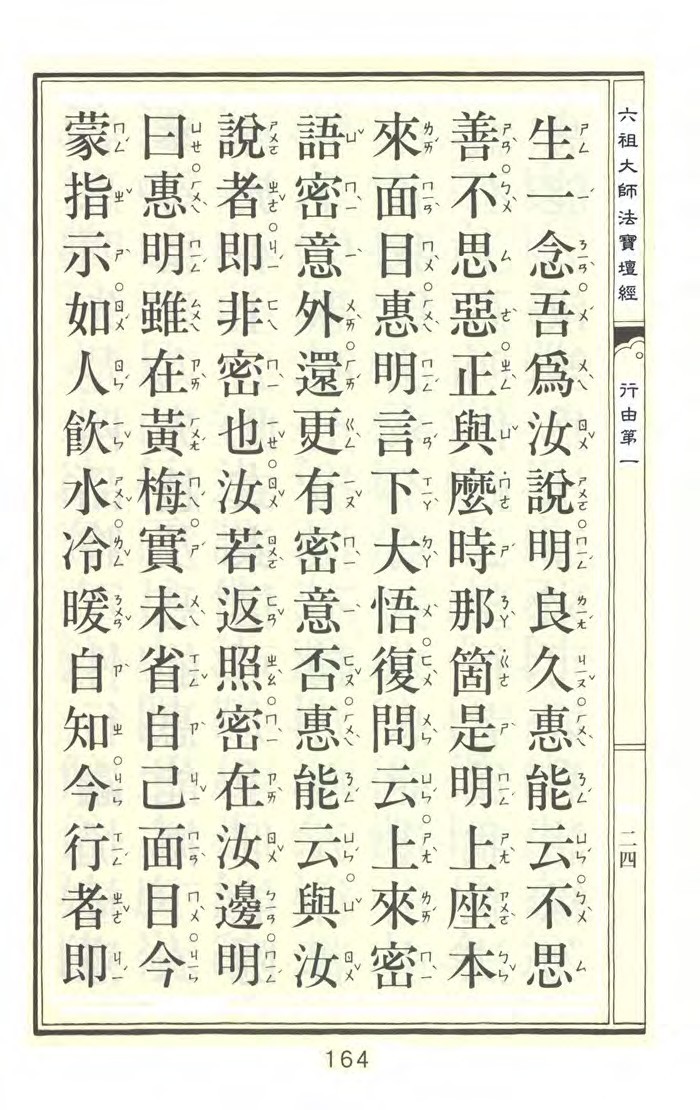 六祖大師法寶壇經　行由第一　二四
生一念吾爲汝說明良久惠能云不思
善不思惡正與麼時那箇是明上座本
來面目惠明言下大悟復問云上來密
語密意外還更有密意否惠能云與汝
說者即非密也汝若返照密在汝邊明
曰惠明雖在黃梅實未省自己面目今
蒙指示如人飲水冷暖自知今行者即
164